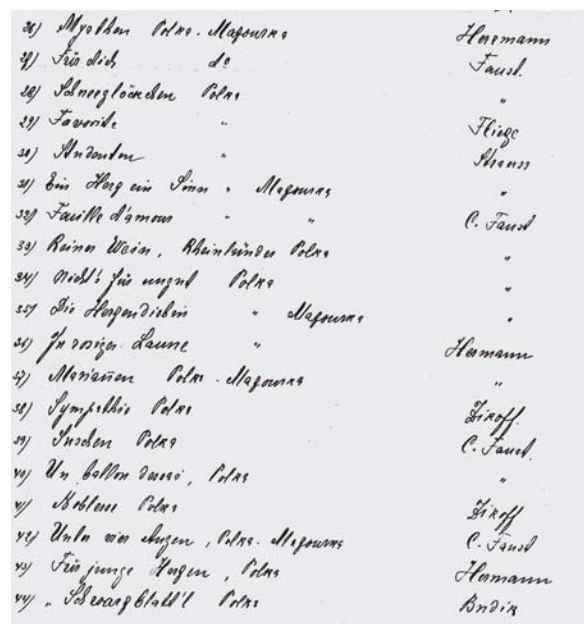 26) Myrthen Polka-Mazourka Herrmann
27) Für dich do Faust.
28) Schneeglöckchen Polka "
29) Favorite " Fliege
30) Studenten " Strauss
31) Ein Herz ein Sinn " Mazourka "
32) Feuille d'amour " " C. Faust
33) Reiner Wein, Rheinländer Polka "
34) Nicht's für ungut Polka "
35) Die Herzendiebin " Mazourka "
36) In rosiger Laune " Hermann
37) Mariañen Polka-Mazourka "
38) Sympathie Polka Zikoff.
39) Suschen Polka C. Faust.
40) Un ballon d'essai, Polka "
41) Noblesse Polka Zikoff
42) Unter vier Augen, Polka-Mazourka C. Faust
43) Für junge Herzen, Polka Hermann
44) "Schwarzblattl Polka Budik